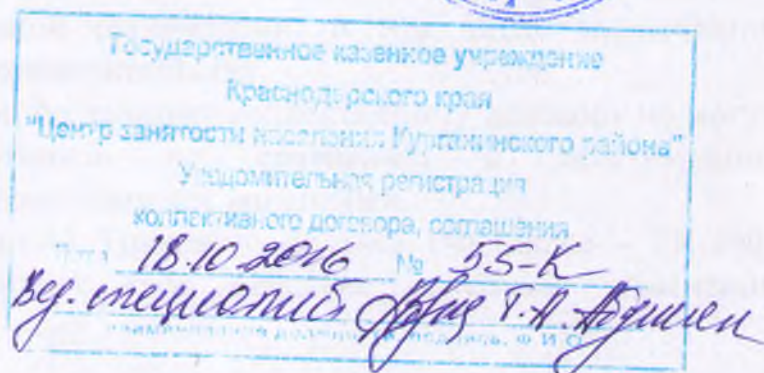 Государственное казенное учреждение
Краснодарского края
"Центр занятости населения Курганинского района"
Уведомительная регистрация
коллективного договора, соглашения
Дата 18.10.2016 № 55-К
Вед. специалист Т.А.
наименование должности, подпись, Ф.И.О.